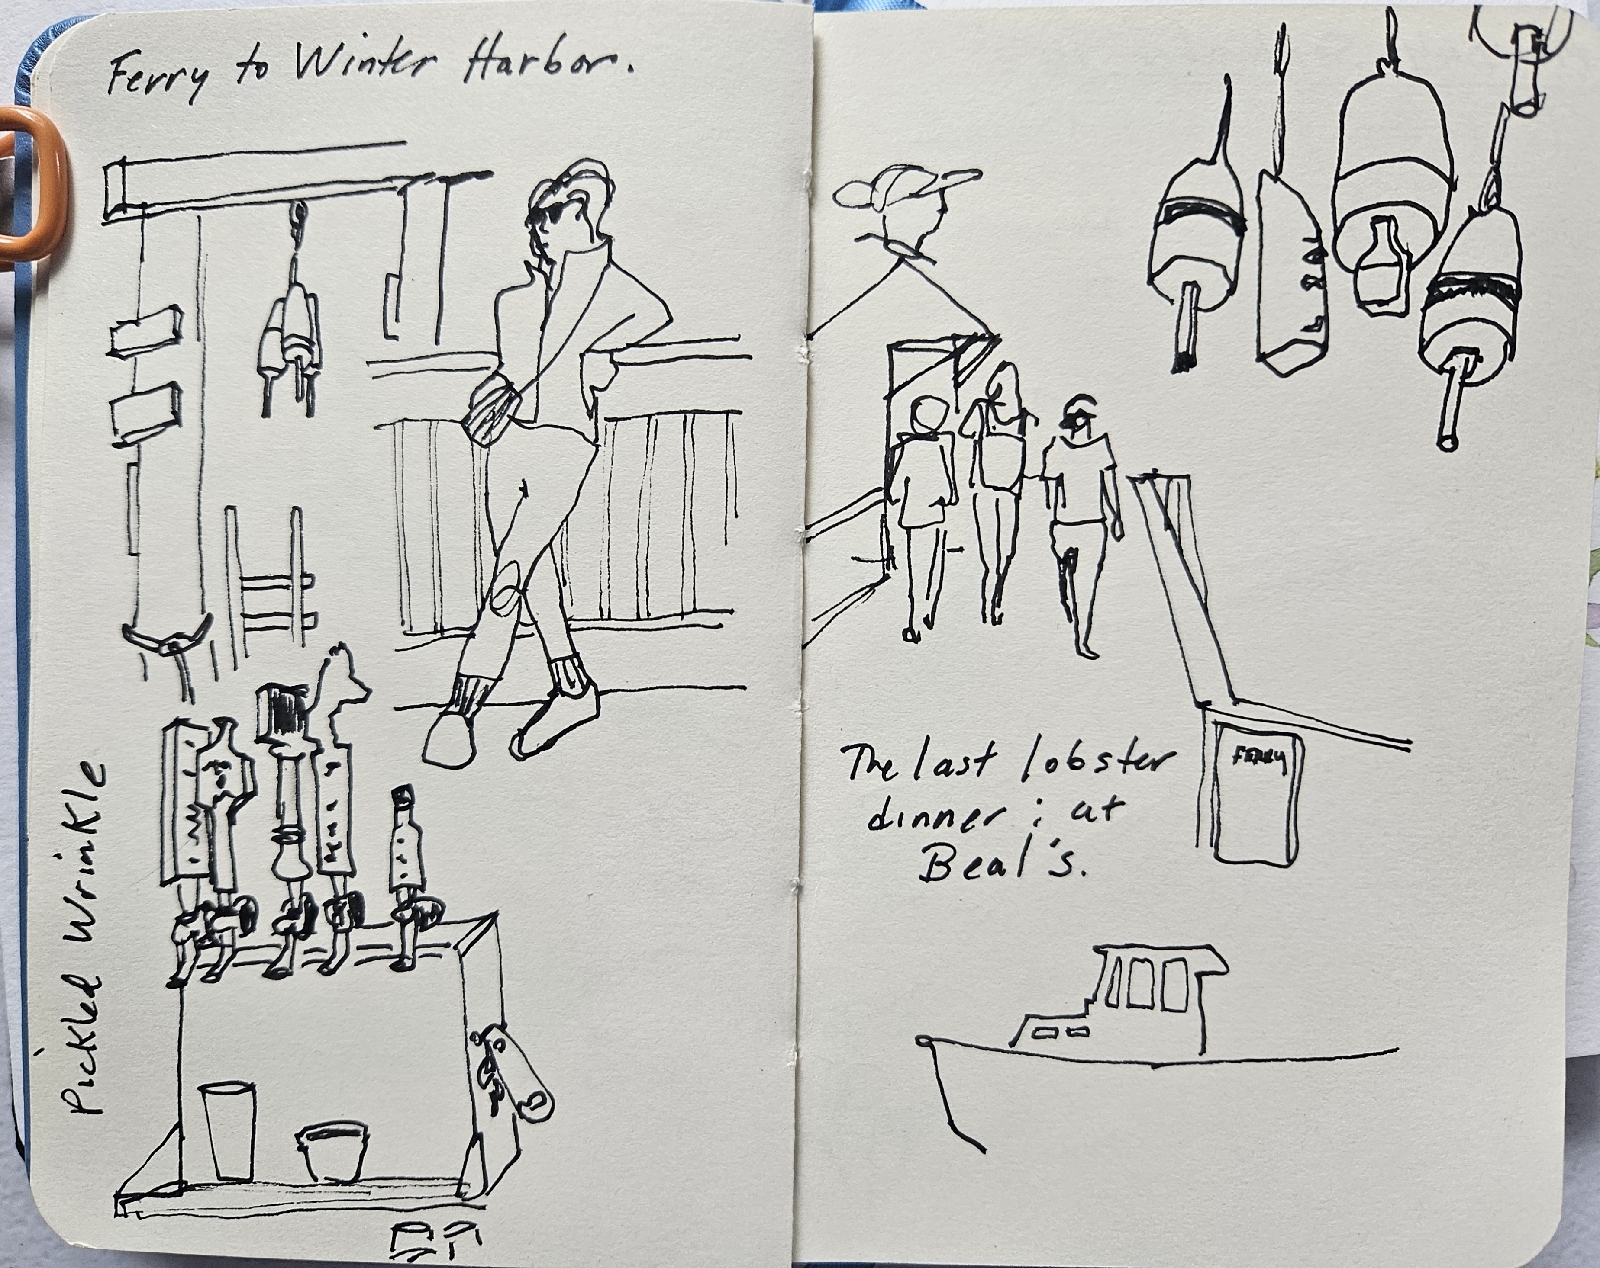 Ferry to Winter Harbor.
Pickled Wrinkle
The last lobster
dinner : at
Beal's.
FERRY